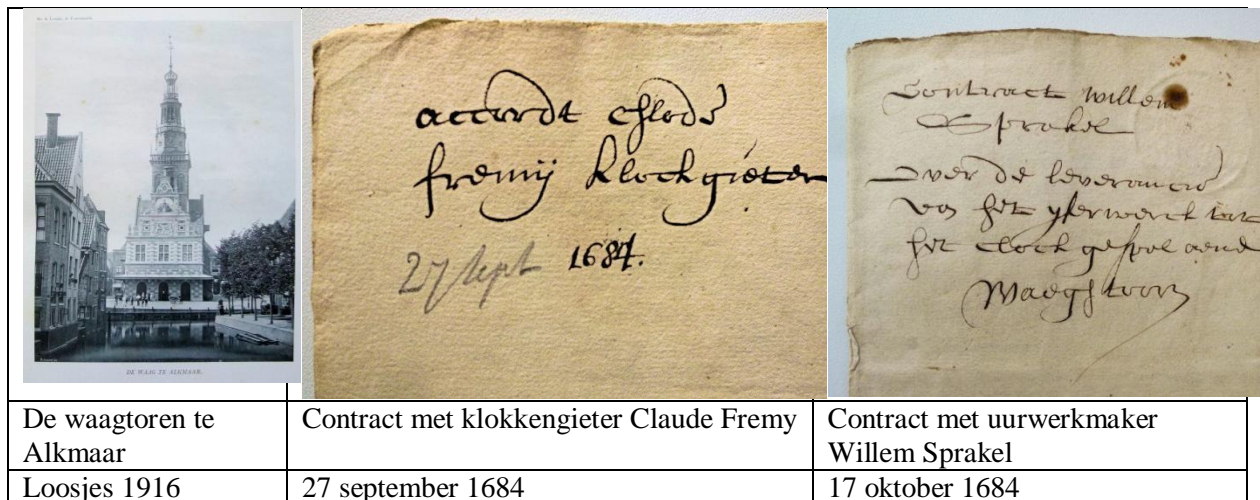 DE WAAG TE ALKMAAR.
accordt Chlode
fremij klockgieter
27 sept 1684.
Contract willem
Sprakel
Over de leverancie
van het yserwerck tot
het clock gespel aende
Waeghtoorn
De waagtoren te
Alkmaar
Contract met klokkengieter Claude Fremy
Contract met uurwerkmaker
Willem Sprakel
Loosjes 1916
27 september 1684
17 oktober 1684